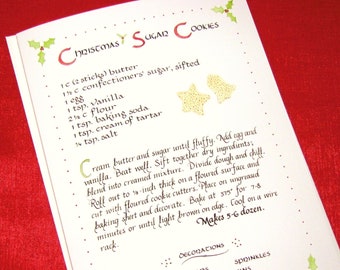 Christmas Sugar Cookies
1 c (2 sticks) butter
1 ½ c confectioners' sugar, sifted
1 egg
1 tsp. vanilla
2 ½ c flour
1 tsp. baking soda
1 tsp. cream of tartar
¼ tsp. salt
Cream butter and sugar until fluffy. Add egg and
vanilla. Beat well. Sift together dry ingredients;
blend into creamed mixture. Divide dough and chill.
Roll out to ¼-inch thick on a floured surface and
cut with floured cookie cutters. Place on ungreased
baking shirt and decorate. Bake at 375° for 7-8
minutes or until light brown on edge. Cool on a wire
rack.
Makes 5-6 dozen.
Decorations
sprinkles